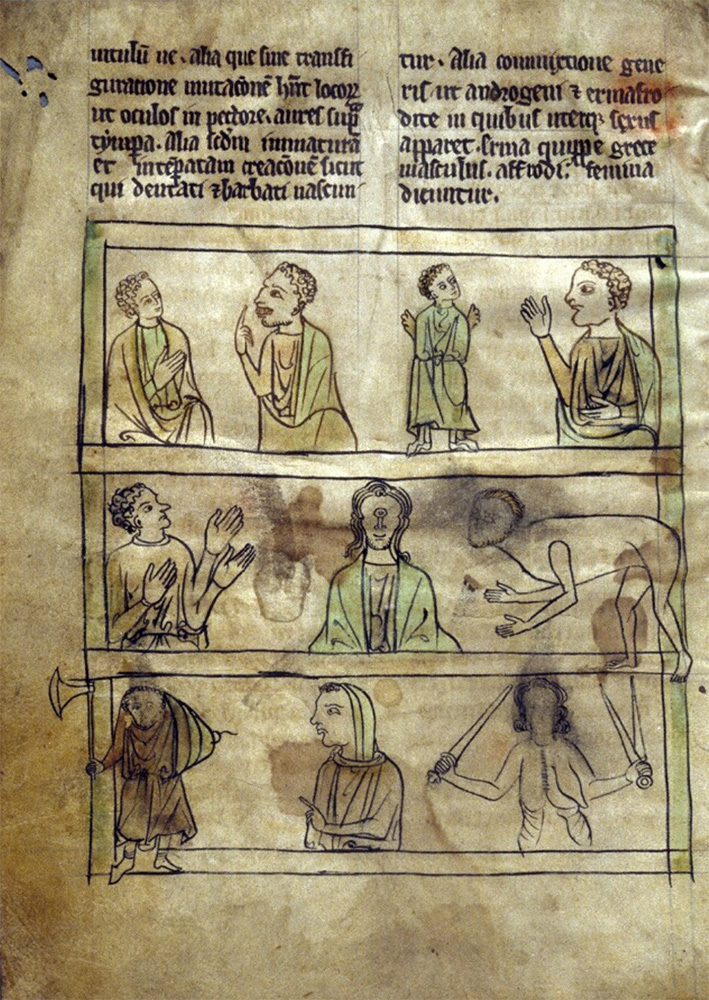 uitulū ue. alia que sine transfi
guratione mutacōnē hn̄t locoꝝ
ut oculos in pectore. aures sup̄
tympa. Alia scd̄m inmatura
et intēperatam creacōnē sicut
qui dentati ⁊ barbati nascun
tur. Alia commixtione gene
ris ut androgeni ⁊ ermafro
dite in quibus uterqꝫ sexus
apparet. Erma quippe grece
masculus. affrodi: femina
dicuntur.